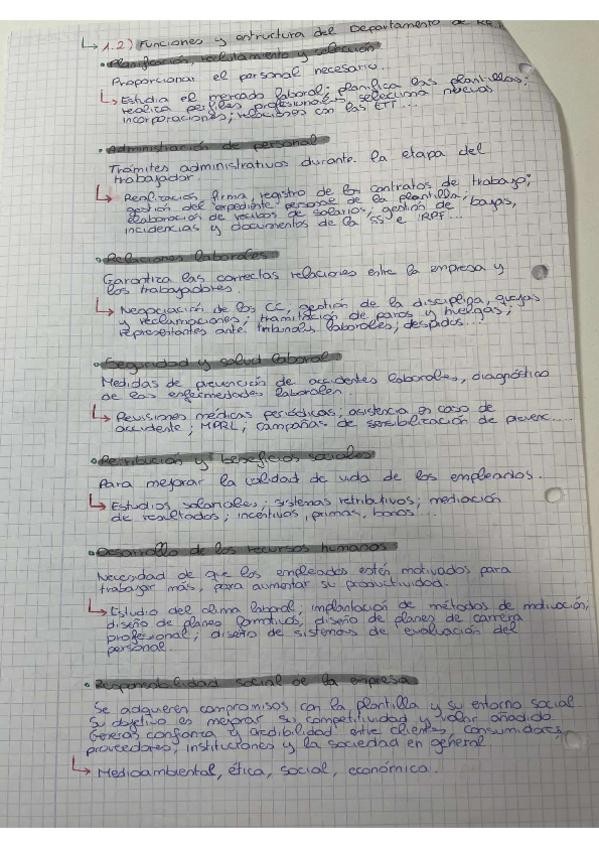 ↳ 1.2) Funciones y estructura del Departamento de RR.
• Planificación, reclutamento y selección
Proporcionar el personal necesario.
↳ Estudia el mercado laboral; planifica las plantillas;
realiza perfiles profesionales, selecciona nuevas
incorporaciones; relaciones con las ETT...
• Administración de personal
Trámites administrativos durante la etapa del
trabajador.
↳ Realización firma, registro de los contratos de trabajo;
gestión del expediente personal de la plantilla;
elaboración de recibos de salarios; gestión de bajas,
incidencias y documentos de la SS e IRPF...
• Relaciones laborales
Garantiza las correctas relaciones entre la empresa y
los trabajadores.
↳ Negociación de los CC, gestión de la disciplina, quejas
y reclamaciones; tramitación de paros y huelgas;
representantes ante tribunals laborales; despidos...
• Seguridad y salud laboral
Medidas de prevención de accidentes laborales, diagnóstico
de las enfermedades laborales.
↳ Revisiones médicas periódicas; asistencia en caso de
accidente; MPRL; campañas de sensibilización de prevenc....
• Retribución y beneficios sociales
Para mejorar la calidad de vida de los empleados.
↳ Estudios salariales; sistemas retributivos; mediación
de resultados; incentivos, primas, bonos...
• Desarrollo de los recursos humanos
Necesidad de que los empleados estén motivados para
trabajar más, para aumentar su productividad.
↳ Estudio del clima laboral; implantación de métodos de motivación;
diseño de planes formativos, diseño de planes de carrera
profesional; diseño de sistemas de evaluación del
personal.
• Responsabilidad social de la empresa
Se adquieren compromisos con la plantilla y su entorno social
Su objetivo es mejorar su competitividad y valor añadido.
confianza y credibilidad entre clientes, consumidores,
proveedores, instituciones y la sociedad en general
↳ Medioambiental, ética, social, económica.